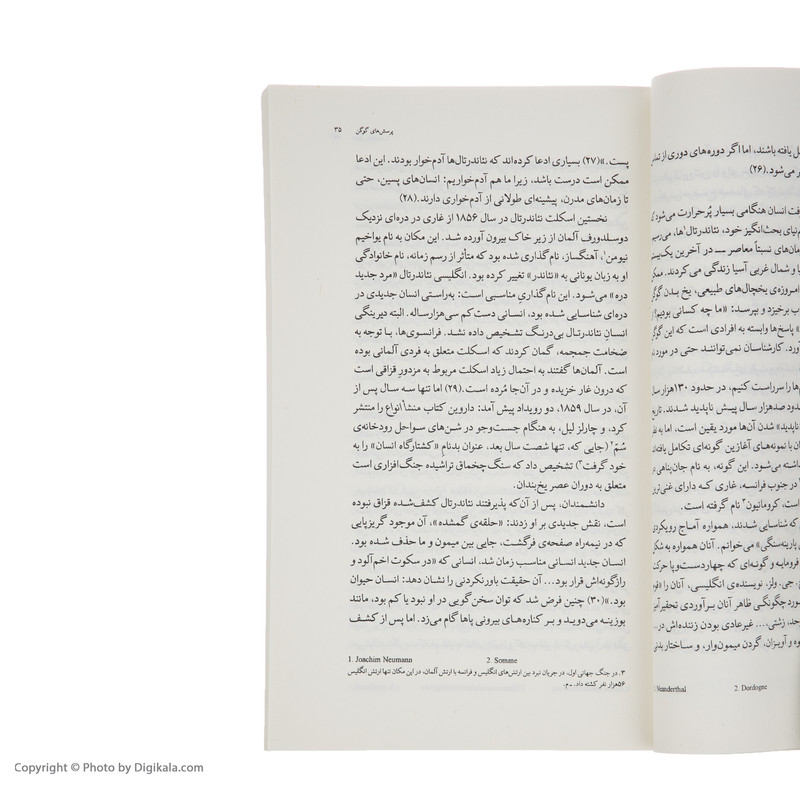 پرسش‌های گوگن ۳۵
پست.»(۲۷) بسیاری ادعا کرده‌اند که نئاندرتال‌ها آدم‌خوار بودند. این ادعا
ممکن است درست باشد، زیرا ما هم آدم‌خواریم: انسان‌های پسین، حتی
تا زمان‌های مدرن، پیشینه‌ای طولانی از آدم‌خواری دارند.(۲۸)
نخستین اسکلت نئاندرتال در سال ۱۸۵۶ از غاری در دره‌ای نزدیک
دوسلدورف آلمان از زیر خاک بیرون آورده شد. این مکان به نام یواخیم
نیومن۱، آهنگساز، نام‌گذاری شده بود که متأثر از رسم زمانه، نام خانوادگی
او به زبان یونانی به «نئاندر» تغییر کرده بود. انگلیسی نئاندرتال «مرد جدید
دره» می‌شود. این نام‌گذاریِ مناسبی است: به‌راستی انسان جدیدی در
دره‌ای شناسایی شده بود، انسانی دست‌کم سی‌هزارساله. البته دیرینگی
انسان نئاندرتال بی‌درنگ تشخیص داده نشد. فرانسوی‌ها، با توجه به
ضخامت جمجمه، گمان کردند که اسکلت متعلق به فردی آلمانی بوده
است. آلمان‌ها گفتند به احتمال زیاد اسکلت مربوط به مزدور قزاقی است
که درون غار خزیده و در آن‌جا مُرده است.(۲۹) اما تنها سه سال پس از
آن، در سال ۱۸۵۹، دو رویداد پیش آمد: داروین کتاب منشأ انواع را منتشر
کرد، و چارلز لیل، به هنگام جست‌وجو در شن‌های سواحل رودخانه‌ی
سُم۲ (جایی که، تنها شصت سال بعد، عنوان بدنام «کشتارگاه انسان» را به
خود گرفت۳) تشخیص داد که سنگ‌چخماق تراشیده جنگ‌افزاری است
متعلق به دوران عصر یخ‌بندان.
دانشمندان، پس از آن‌که پذیرفتند نئاندرتال کشف‌شده قزاق نبوده
است، نقش جدیدی بر او زدند: «حلقه‌ی گمشده»، آن موجود گریزپایی
که در نیمه‌راه صفحه‌ی فرگشت، جایی بین میمون و ما حذف شده بود.
انسان جدید انسانی مناسب زمان شد، انسانی که «در سکوت اخم‌آلود و
رازگونه‌اش قرار بود... آن حقیقت باورنکردنی را نشان دهد: انسان حیوان
بود.»(۳۰) چنین فرض شد که توان سخن‌گویی در او نبود یا کم بود، مانند
بوزینه می‌دوید و بر کناره‌های بیرونی پاها گام می‌زد. اما پس از کشف
1. Joachim Neumann 2. Somme
۳. در جنگ جهانی اول، در جریان نبرد بین ارتش‌های انگلیس و فرانسه با ارتش آلمان، در این مکان تنها ارتش انگلیس
۵۶هزار نفر کشته داد. ـ م.
یافته باشند، اما اگر دوره‌های دوری از
می‌شود.(۲۶)
انسان هنگامی بسیار پُرحرارت می‌شود
بحث‌انگیز خود، نئاندرتال‌ها،
نسبتاً معاصر ــ در آخرین
و شمال غربی آسیا زندگی می‌کردند.
امروزه‌ی یخچال‌های طبیعی، یخ بدن
برخیزد و بپرسد: «ما چه کسانی بودیم؟
پاسخ‌ها وابسته به افرادی است که این
آورد. کارشناسان نمی‌توانند حتی در مورد
را سرراست کنیم، در حدود ۱۳۰هزار
صدهزار سال پیش ناپدید شدند.
شدن آن‌ها مورد یقین است، اما به
با نمونه‌های آغازین گونه‌ای تکامل
می‌شود. این گونه، به نام
در جنوب فرانسه، غاری که دارای
است، کرومانیون۳ نام گرفته است.
که شناسایی شدند، همواره آماج
می‌خوانم. آنان همواره به
فرومایه و گونه‌ای که
جی. ولز، نویسنده‌ی انگلیسی، آنان را
چگونگی ظاهر آنان برآوردی
زشتی.... غیرعادی بودن
و آویزان، گردن میمون‌وار، و ساختار
Neanderthal 2. Dordogne
Copyright © Photo by Digikala.com